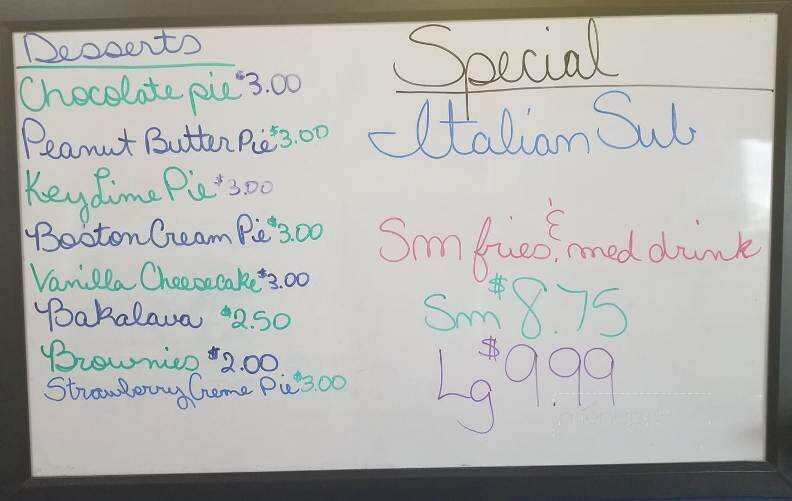 Desserts
Chocolate pie $3.00
Peanut Butter Pie $3.00
Key Lime Pie $3.00
Boston Cream Pie $3.00
Vanilla Cheesecake $3.00
Bakalava $2.50
Brownies $2.00
Strawberry Creme Pie $3.00
Special
Italian Sub
Sm fries, & med drink
Sm $8.75
Lg $9.99